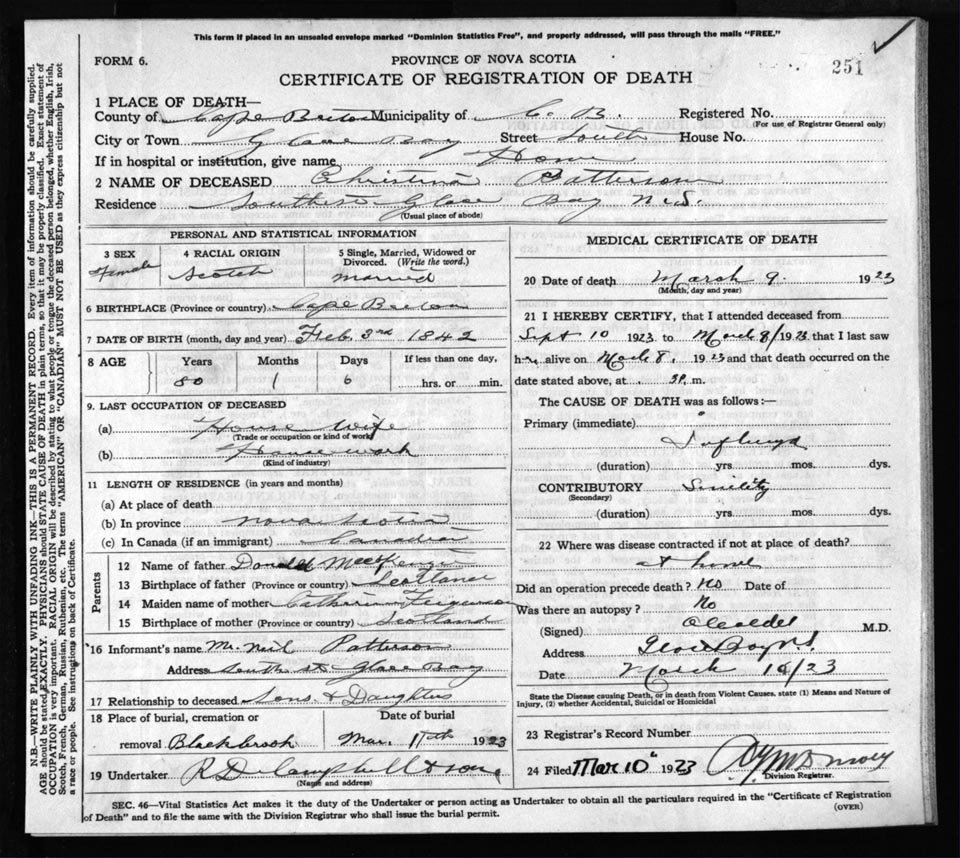 This form if placed in an unsealed envelope marked "Dominion Statistics Free", and properly addressed, will pass through the mails "FREE."
FORM 6.
PROVINCE OF NOVA SCOTIA
251
CERTIFICATE OF REGISTRATION OF DEATH
1 PLACE OF DEATH—
County of Cape Breton Municipality of C. B. Registered No.
(For use of Registrar General only)
City or Town Glace Bay Street South House No.
If in hospital or institution, give name Home
2 NAME OF DECEASED Christina Patterson
Residence South St Glace Bay N.S.
(Usual place of abode)
PERSONAL AND STATISTICAL INFORMATION
3 SEX 4 RACIAL ORIGIN 5 Single, Married, Widowed or Divorced. (Write the word.)
Female Scotch Married
6 BIRTHPLACE (Province or country) Cape Breton
7 DATE OF BIRTH (month, day and year) Feb. 3rd 1842
8 AGE Years Months Days If less than one day,
80 1 6 hrs. or min.
9. LAST OCCUPATION OF DECEASED
(a) House wife
(Trade or occupation or kind of work)
(b) House work
(Kind of industry)
11 LENGTH OF RESIDENCE (in years and months)
(a) At place of death
(b) In province Nova Scotia
(c) In Canada (if an immigrant) Canadian
Parents
12 Name of father Donald
13 Birthplace of father (Province or country) Scotland
14 Maiden name of mother Catherine Ferguson
15 Birthplace of mother (Province or country) Scotland
16 Informant's name Mr. Neil Patterson
Address South St Glace Bay
17 Relationship to deceased Sons & Daughters
18 Place of burial, cremation or removal Blackbrook
Date of burial
Mar. 11th 1923
19 Undertaker R D Campbell & Son
(Name and address)
MEDICAL CERTIFICATE OF DEATH
20 Date of death March 9. 1923
(Month, day and year)
21 I HEREBY CERTIFY, that I attended deceased from
Sept 10 1923 to March 8/ 1923 that I last saw
her alive on March 8. 1923 and that death occurred on the
date stated above, at 3P. m.
The CAUSE OF DEATH was as follows:—
Primary (immediate)
Influenza
(duration) yrs. mos. dys.
CONTRIBUTORY Senility
(Secondary)
(duration) yrs. mos. dys.
22 Where was disease contracted if not at place of death?
at home
Did an operation precede death? No Date of
Was there an autopsy? No
(Signed) M.D.
Address Glace Bay N.S.
Date March 10/23
State the Disease causing Death, or in death from Violent Causes, state (1) Means and Nature of
Injury, (2) whether Accidental, Suicidal or Homicidal
23 Registrar's Record Number
24 Filed Mar 10" 1923
Division Registrar.
SEC. 46—Vital Statistics Act makes it the duty of the Undertaker or person acting as Undertaker to obtain all the particulars required in the "Certificate of Registration
of Death" and to file the same with the Division Registrar who shall issue the burial permit.
(OVER)
N.B.—WRITE PLAINLY WITH UNFADING INK—THIS IS A PERMANENT RECORD. Every item of information should be carefully supplied.
AGE should be stated EXACTLY. PHYSICIANS should STATE CAUSE OF DEATH in plain terms, so that it may be properly classified. Exact statement of
OCCUPATION is very important. RACIAL ORIGIN will be described by stating to what people or tongue the deceased person belonged, whether English, Irish,
Scotch, French, German, Russian, Ruthenian, etc. The terms "AMERICAN" OR "CANADIAN" MUST NOT BE USED as they express citizenship but not
a race or people. See instructions on back of Certificate.